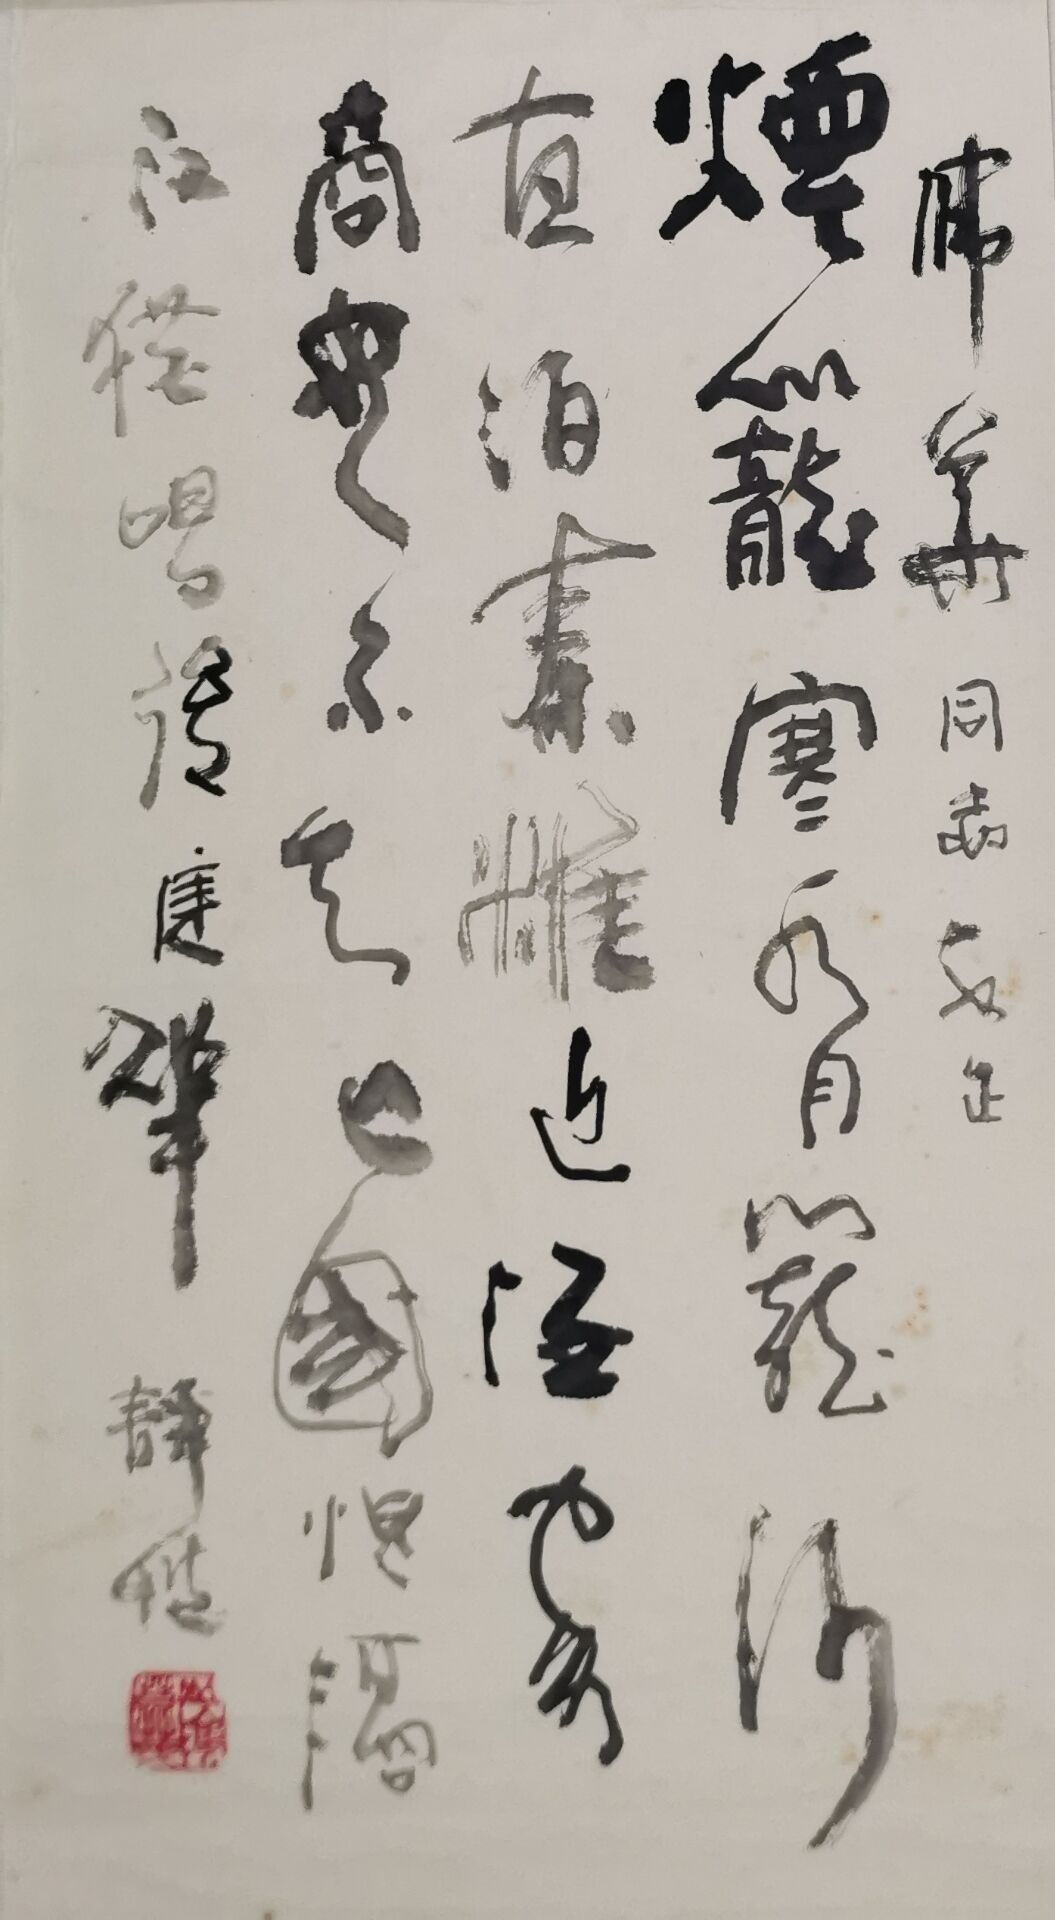 華同志正
煙籠寒水月籠沙
夜泊秦淮近酒家
商女不知亡國恨隔
江猶唱後庭華 靜